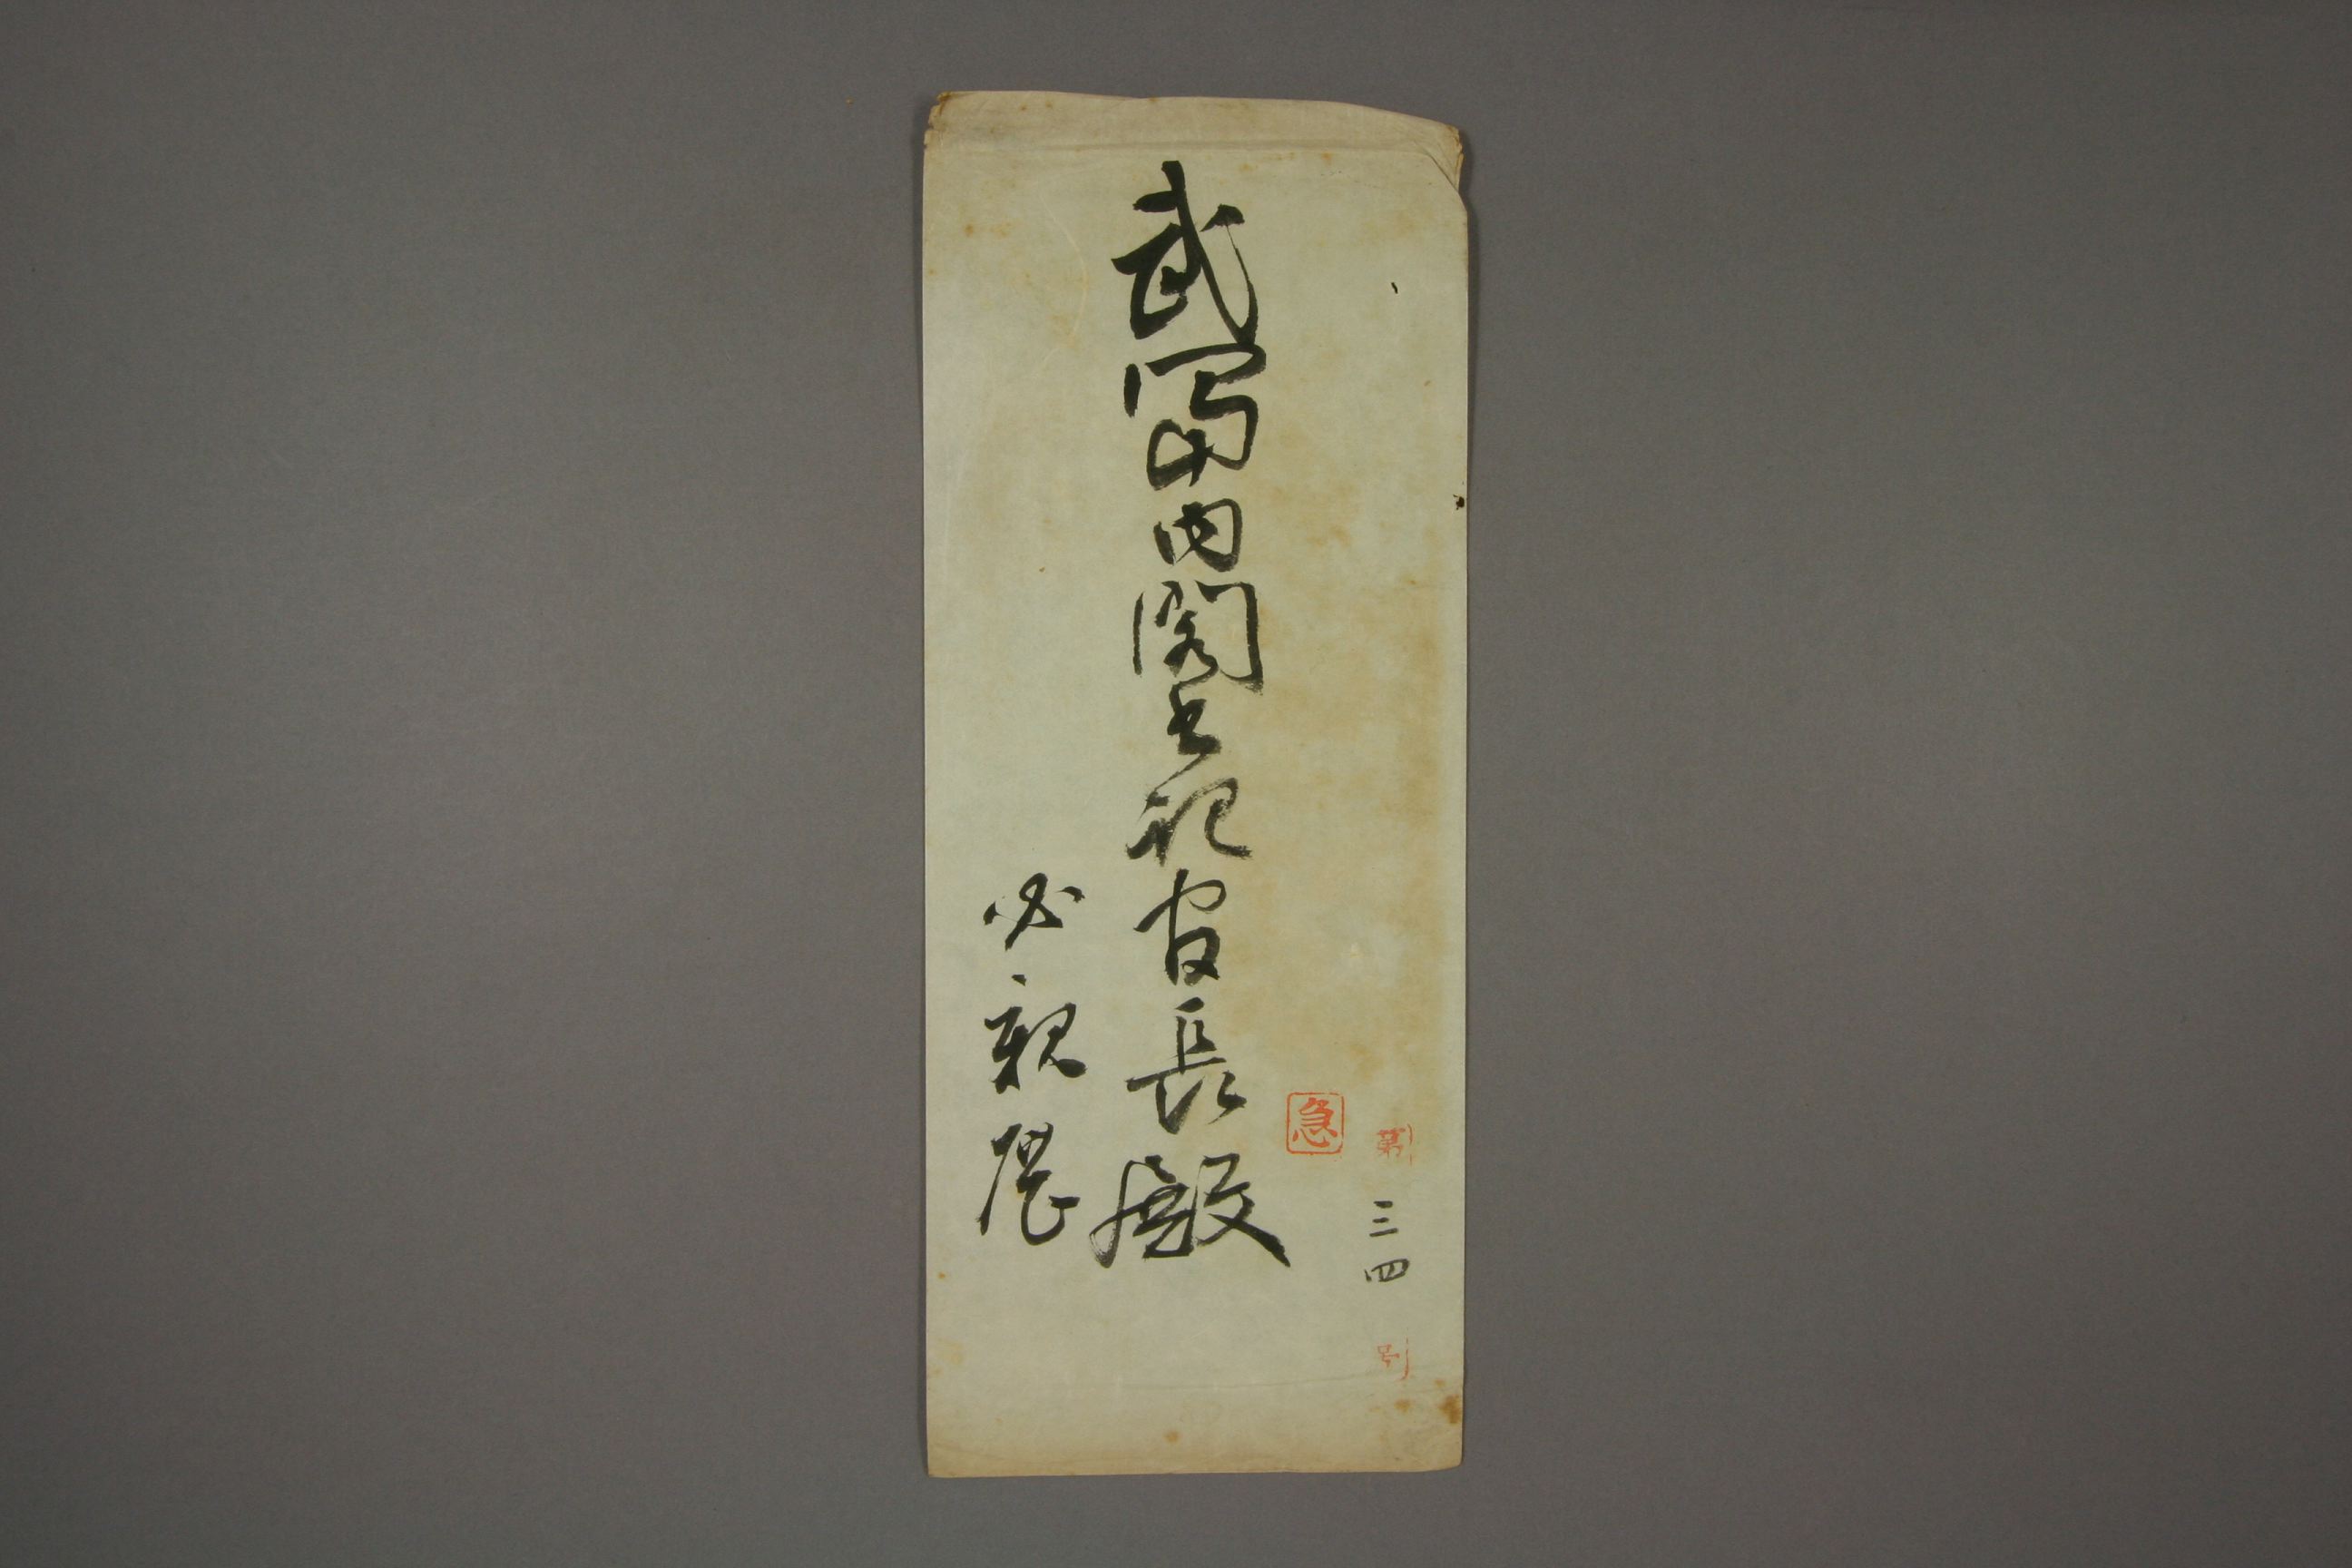 第三四号
急
武冨内閣書記官長殿
必親展